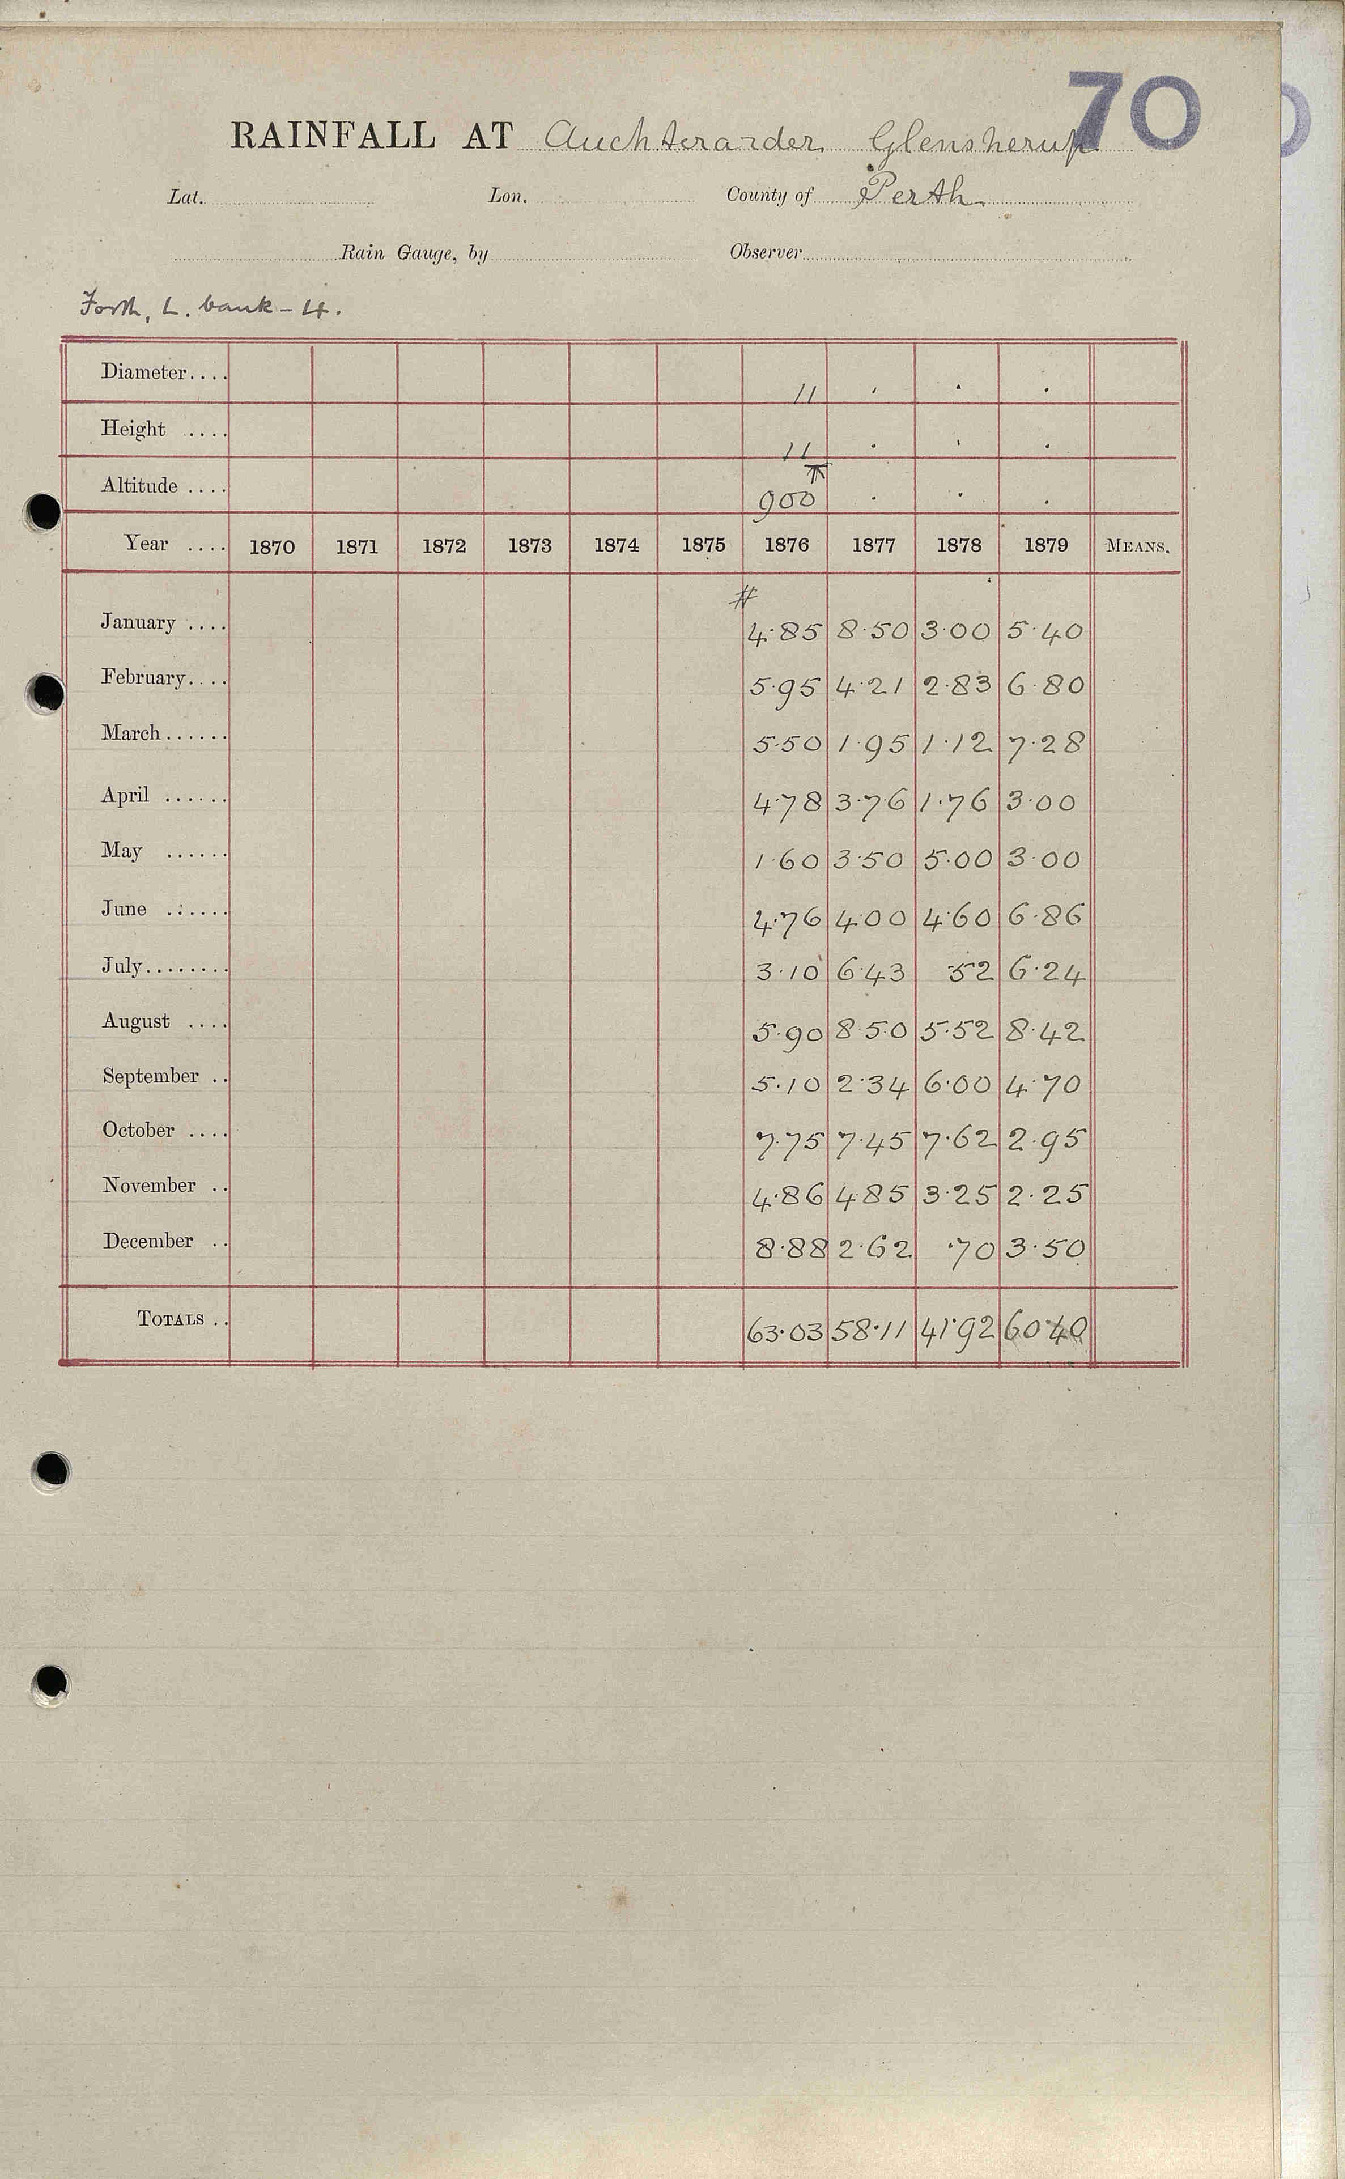 70
RAINFALL AT Auchterarder Glensherup
Lat. Lon. County of Perth
Rain Gauge, by Observer
Forth, L. bank - 4.
Diameter.... 11 . . .
Height .... 11 . . .
Altitude .... 900 . . .
Year .... 1870 1871 1872 1873 1874 1875 1876 1877 1878 1879 MEANS.
#
January .... 4.85 8.50 3.00 5.40
February.... 5.95 4.21 2.83 6.80
March...... 5.50 1.95 1.12 7.28
April ...... 4.78 3.76 1.76 3.00
May ...... 1.60 3.50 5.00 3.00
June ...... 4.76 4.00 4.60 6.86
July........ 3.10 6.43 .52 6.24
August .... 5.90 8.50 5.52 8.42
September .. 5.10 2.34 6.00 4.70
October .... 7.75 7.45 7.62 2.95
November .. 4.86 4.85 3.25 2.25
December .. 8.88 2.62 .70 3.50
TOTALS .. 63.03 58.11 41.92 60.40